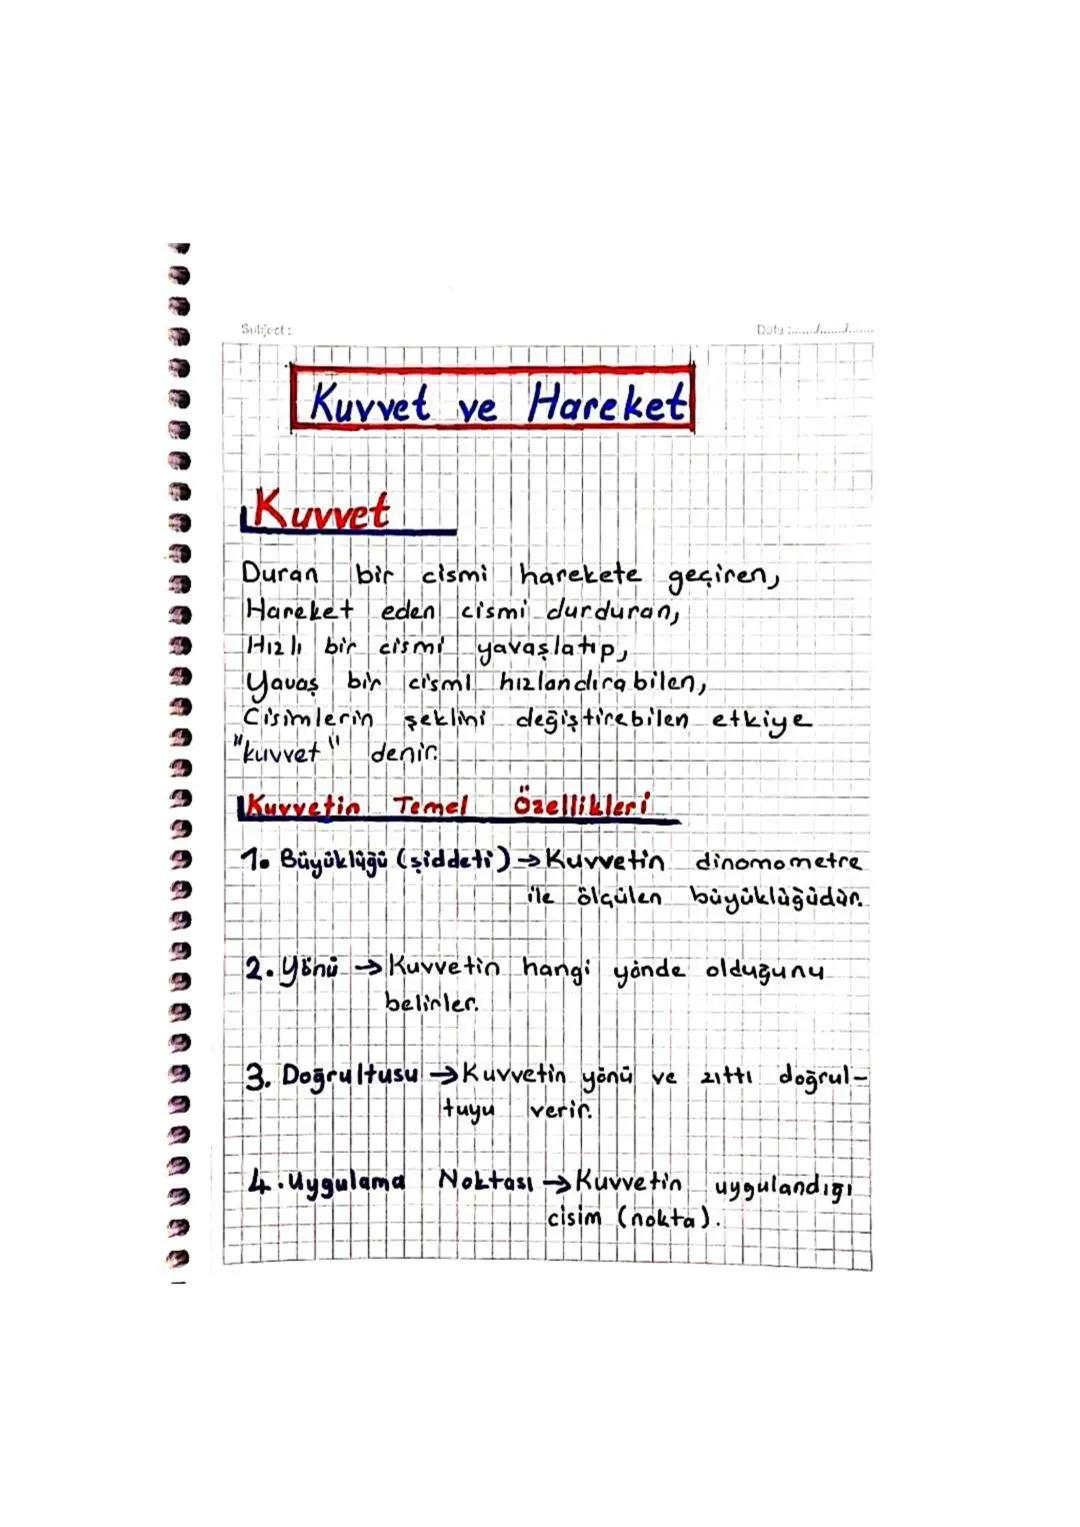 Subject:
Date:....../....../......
Kuvvet ve Hareket
Kuvvet
Duran bir cismi harekete geçiren,
Hareket eden cismi durduran,
Hızlı bir cismi yavaşlatıp,
Yavaş bir cismi hızlandırabilen,
Cisimlerin şeklini değiştirebilen etkiye
"kuvvet" denir.
Kuvvetin Temel Özellikleri
1. Büyüklüğü (şiddeti) → Kuvvetin dinomometre
ile ölçülen büyüklüğüdür.
2. Yönü → Kuvvetin hangi yönde olduğunu
belirler.
3. Doğrultusu → Kuvvetin yönü ve zıttı doğrul-
tuyu verir.
4. Uygulama Noktası → Kuvvetin uygulandığı
cisim (nokta).